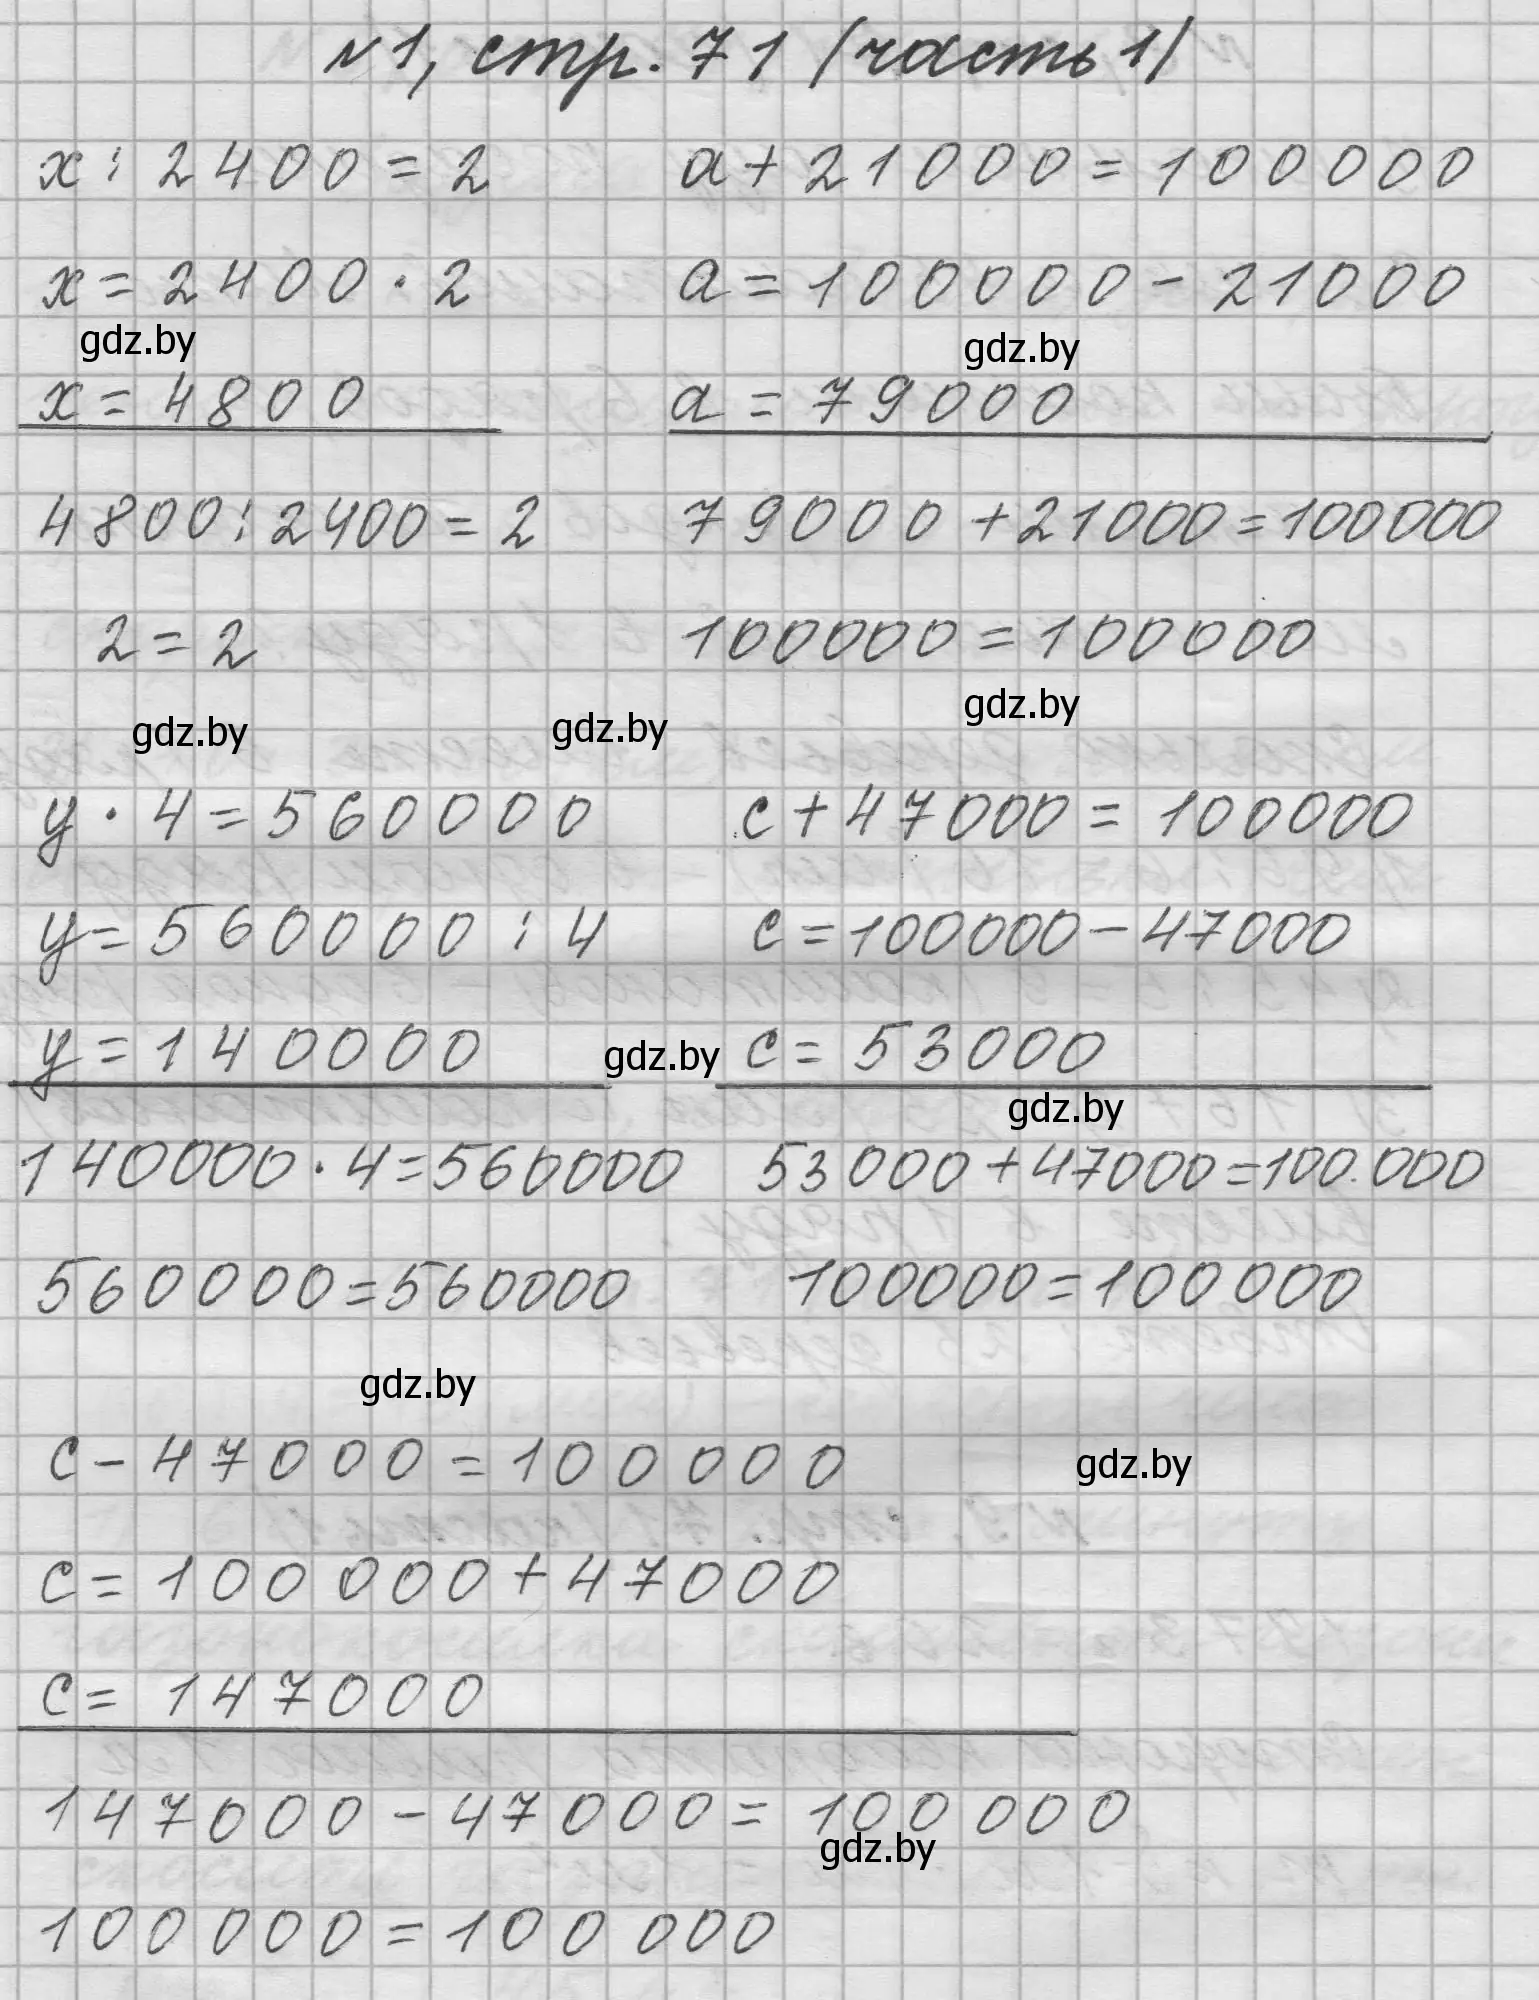 №1, стр. 71 (часть 1)
x : 2400 = 2
x = 2400 · 2
gdz.by
x = 4800
4800 : 2400 = 2
2 = 2
gdz.by
a + 21000 = 100000
a = 100000 - 21000
gdz.by
a = 79000
79000 + 21000 = 100000
100000 = 100000
gdz.by
gdz.by
y · 4 = 560000
y = 560000 : 4
y = 140000
gdz.by
140000 · 4 = 560000
560000 = 560000
gdz.by
c + 47000 = 100000
c = 100000 - 47000
c = 53000
gdz.by
53000 + 47000 = 100.000
100000 = 100000
c - 47000 = 100000
gdz.by
c = 100000 + 47000
c = 147000
147000 - 47000 = 100000
gdz.by
100000 = 100000